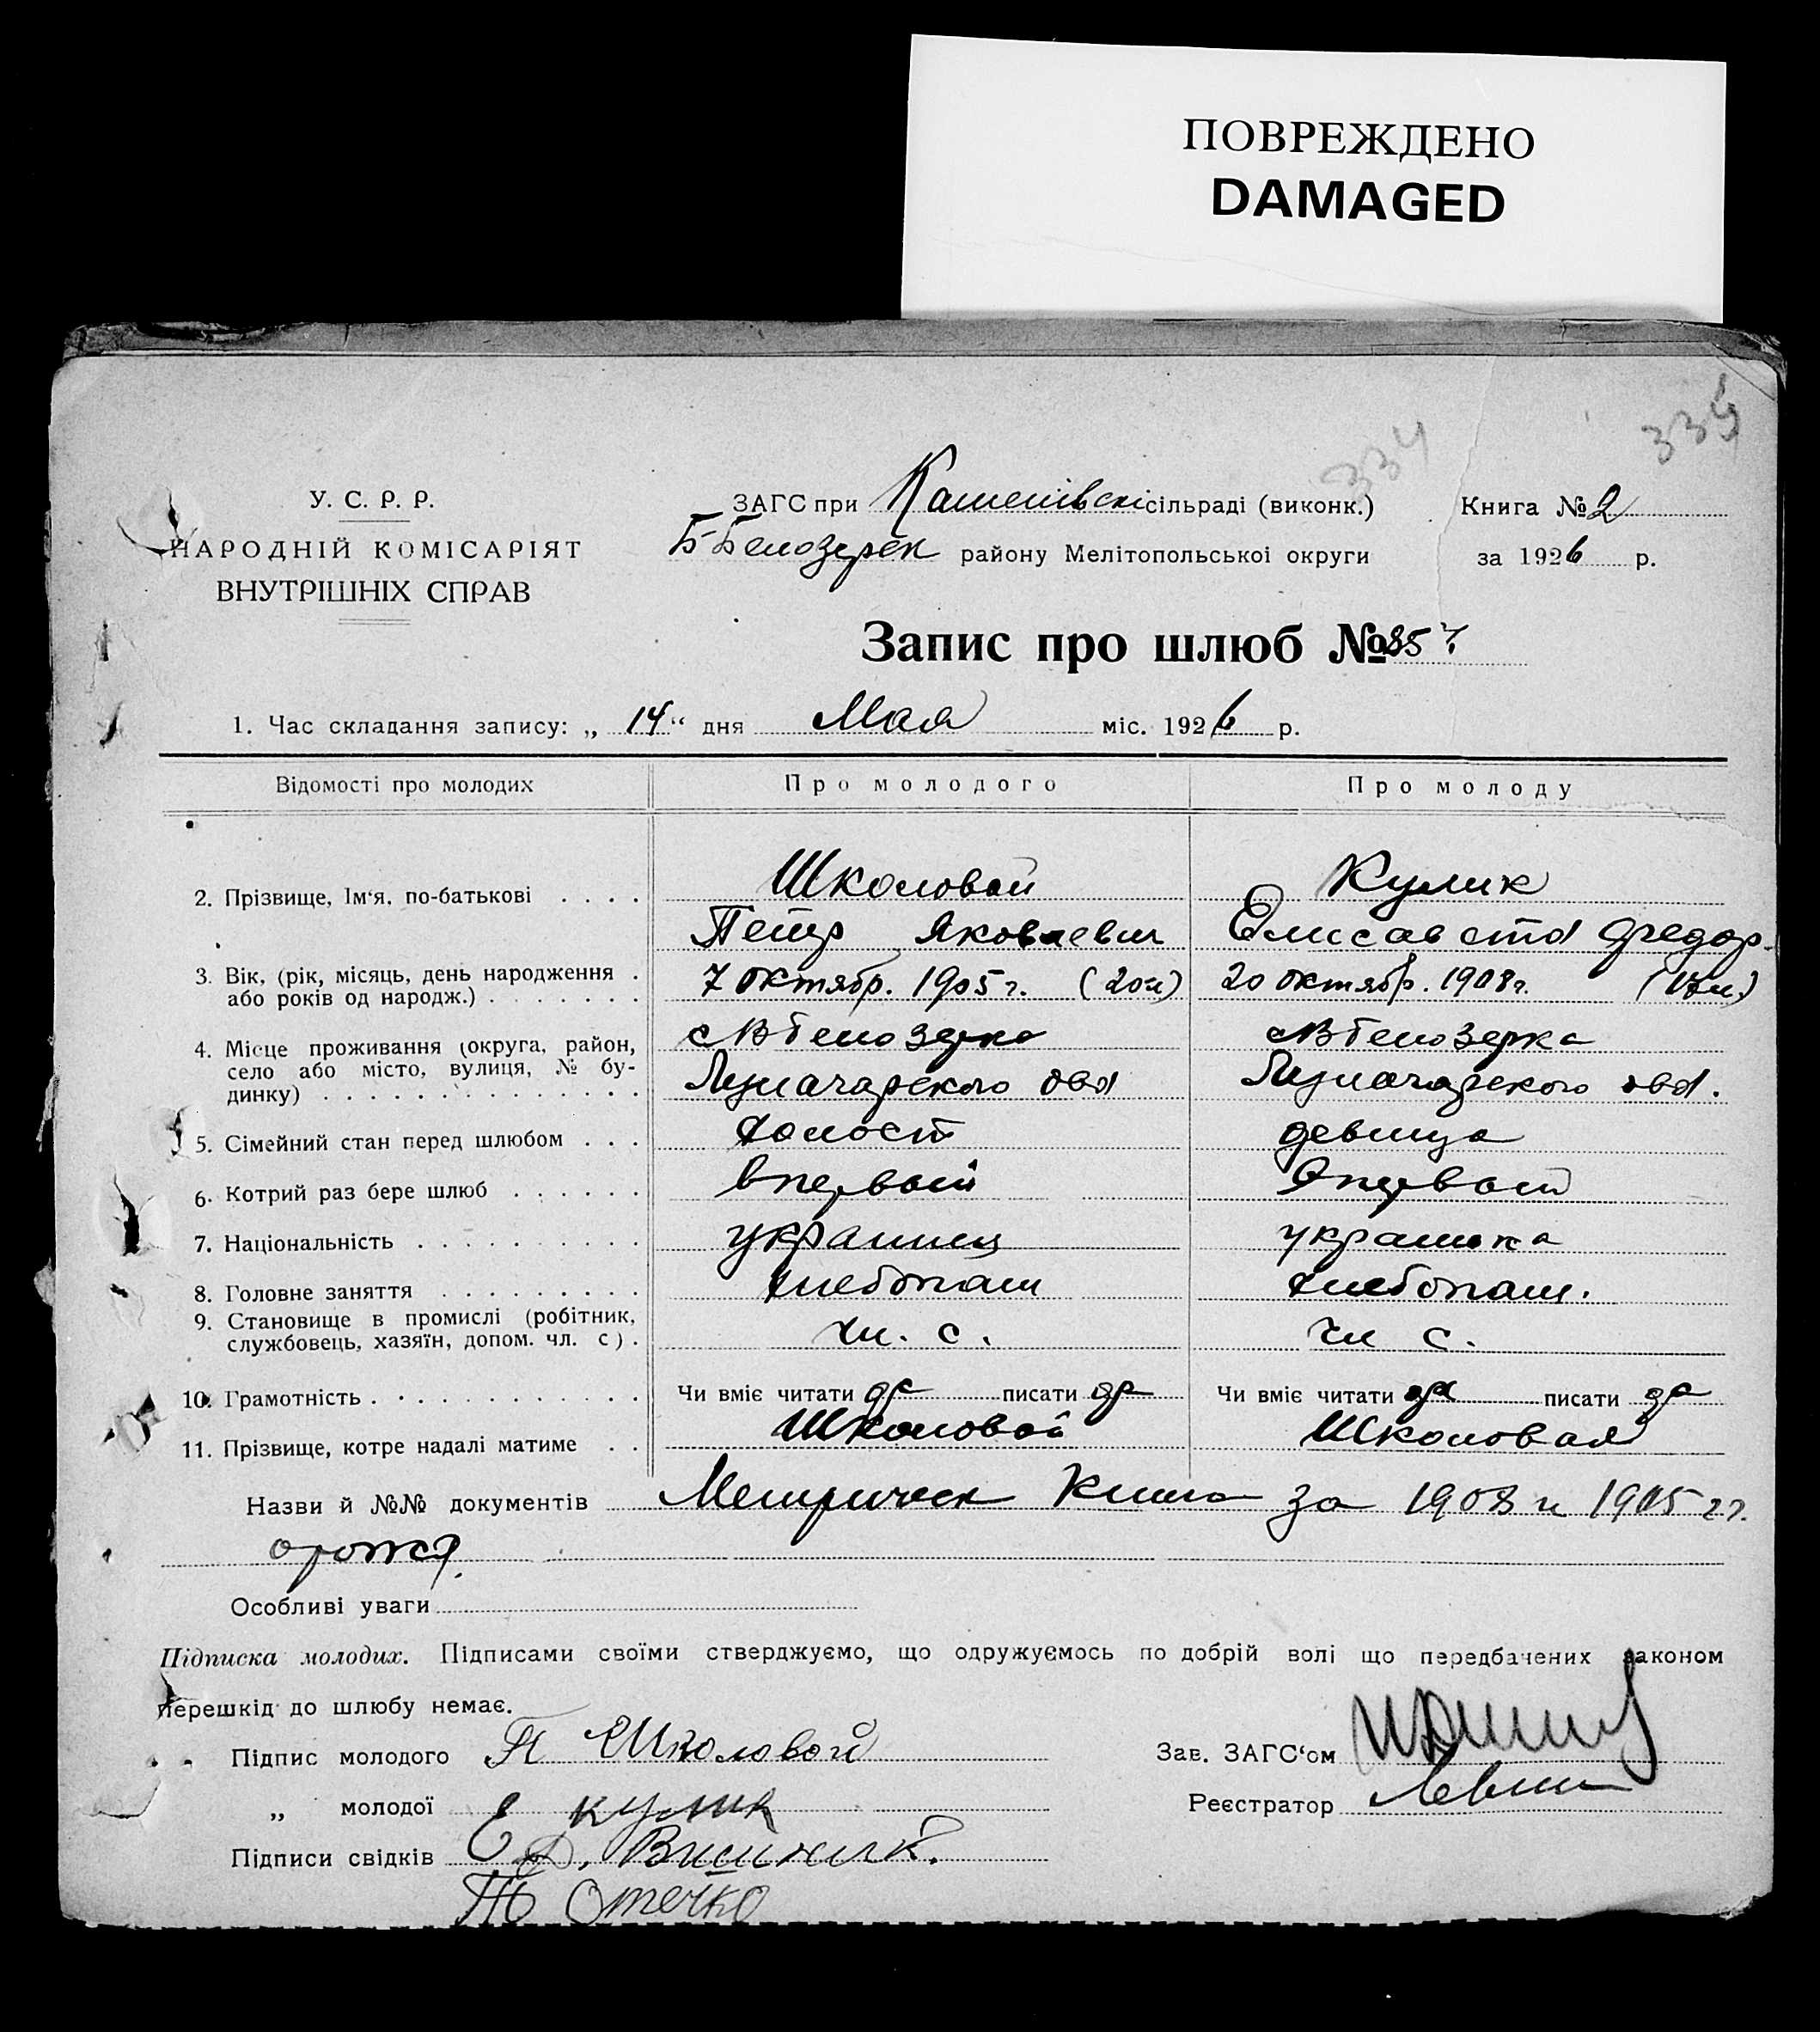 ПОВРЕЖДЕНО
DAMAGED
334
У. С. Р. Р.
НАРОДНІЙ КОМІСАРІЯТ
ВНУТРІШНІХ СПРАВ
ЗАГС при сільраді (виконк.)
Б-Белозерск району Мелітопольської округи
Книга № 2
за 1926 р.
Запис про шлюб №
1. Час складання запису: „ 14 “ дня Мая міс. 1926 р.
Відомості про молодих Про молодого Про молоду
2. Прізвище, Ім‘я, по-батькові . . . . Школовой Кулик
Петр Яковлевич Елисавета Федор.
3. Вік, (рік, місяць, день народження . 7 октябр. 1905 г. (20 л) 20 октябр. 1908 г. (17 л.)
або років од народж.) . . . . . . .
4. Місце проживання (округа, район, с. Б Белозерка с. Б Белозерка
село або місто, вулиця, № бу- Луначарского Луначарского
динку) . . . . . . . . . . . . . .
5. Сімейний стан перед шлюбом . . . холост девица
6. Котрий раз бере шлюб . . . . . . впервой впервой
7. Національність . . . . . . . . . . украинец украинка
8. Головне заняття . . . . . . . . . хлебопаш хлебопаш.
9. Становище в промислі (робітник, чл. с. чл с.
службовець, хазяїн, допом. чл. с) .
10. Грамотність . . . . . . . . . . . Чи вміє читати да писати да Чи вміє читати да писати да
11. Прізвище, котре надалі матиме . . Школовой Школовая
Назви й №№ документів Метрическ Книга за 1908 и 1905 г г.
о рожд.
Особливі уваги
Підписка молодих. Підписами своїми стверджуємо, що одружуємось по добрій волі що передбачених законом
перешкід до шлюбу немає.
Підпис молодого П Школовой
Зав. ЗАГС‘ом
„ молодої Е кулик
Реєстратор
Підписи свідків